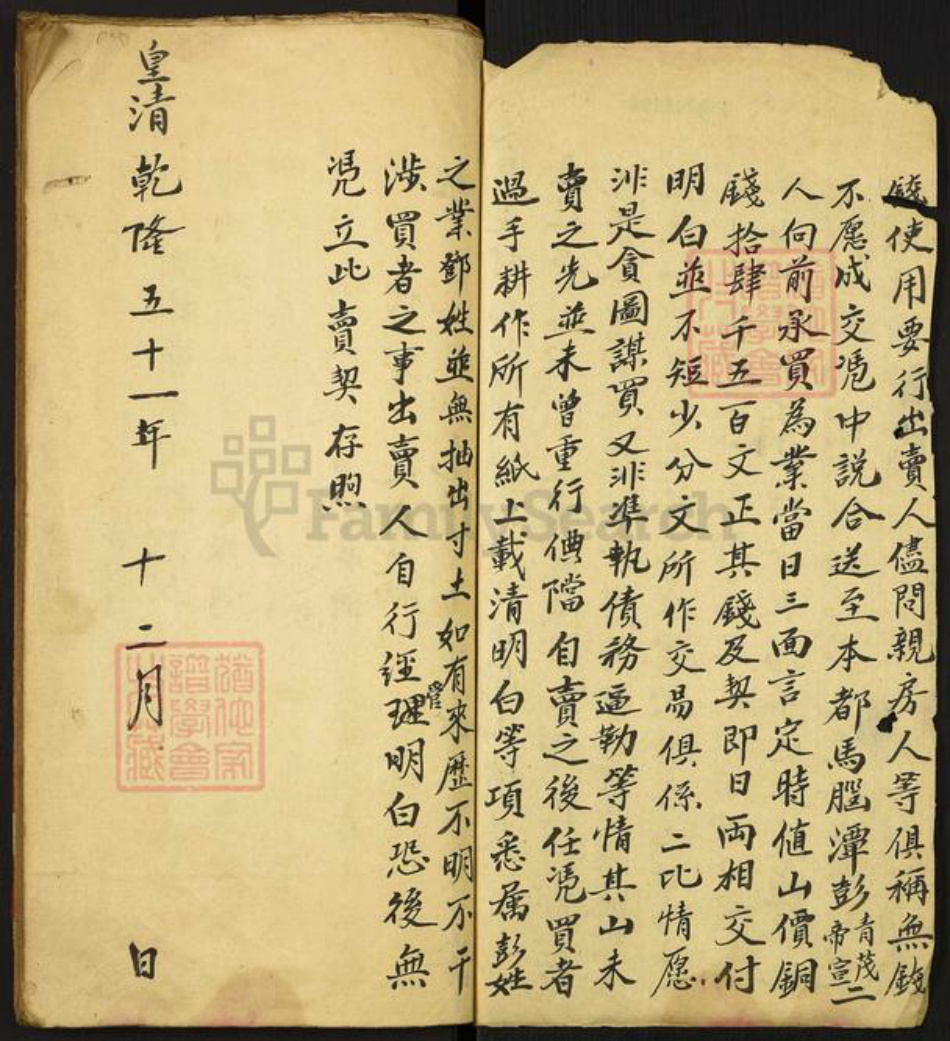 錢使用要行出賣人儘問親房人等俱稱無錢
不愿成交憑中説合送至本都馬腦潭彭青茂帝宣二
人向前承買為業當日三面言定時值山價銅
錢拾肆千五百文正其錢及契即日両相交付
明白並不短少分文所作交易俱係二比情愿
非是貪圖謀買又非準執債務逼勒等情其山未
賣之先並未曾重行儥當自賣之後任憑買者
過手耕作所有紙上載清明白等項悉属彭姓
之業鄧姓並無抽出寸土如有來歷不明不干
渉買者之事出賣人自行經管理明白恐後無
憑立此賣契存照
皇清乾隆五十一年 十二月 日
FamilySearch